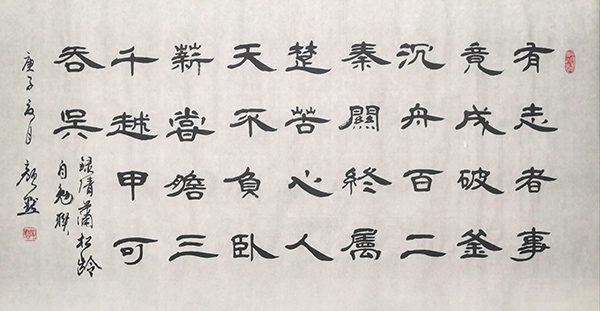 有志者事
竟成破釜
沉舟百二
秦關終屬
楚苦心人
天不負卧
薪嘗膽三
千越甲可
吞吳
録清蒲松齡
自勉聯
庚子夏月